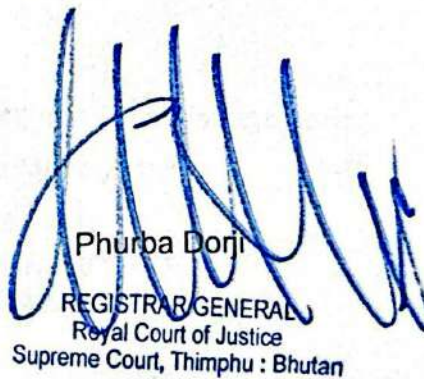 Phurba Dorji
REGISTRAR GENERAL
Royal Court of Justice
Supreme Court, Thimphu : Bhutan